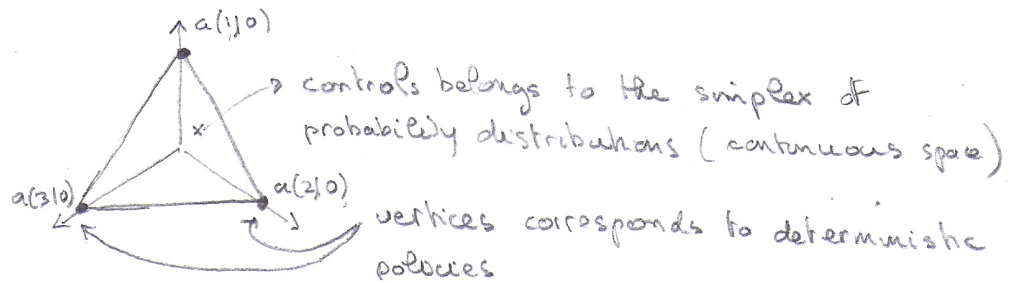 a(1|0)
controls belongs to the simplex of
probability distributions (continuous space)
a(3|0)
a(2|0)
vertices corresponds to deterministic
policies